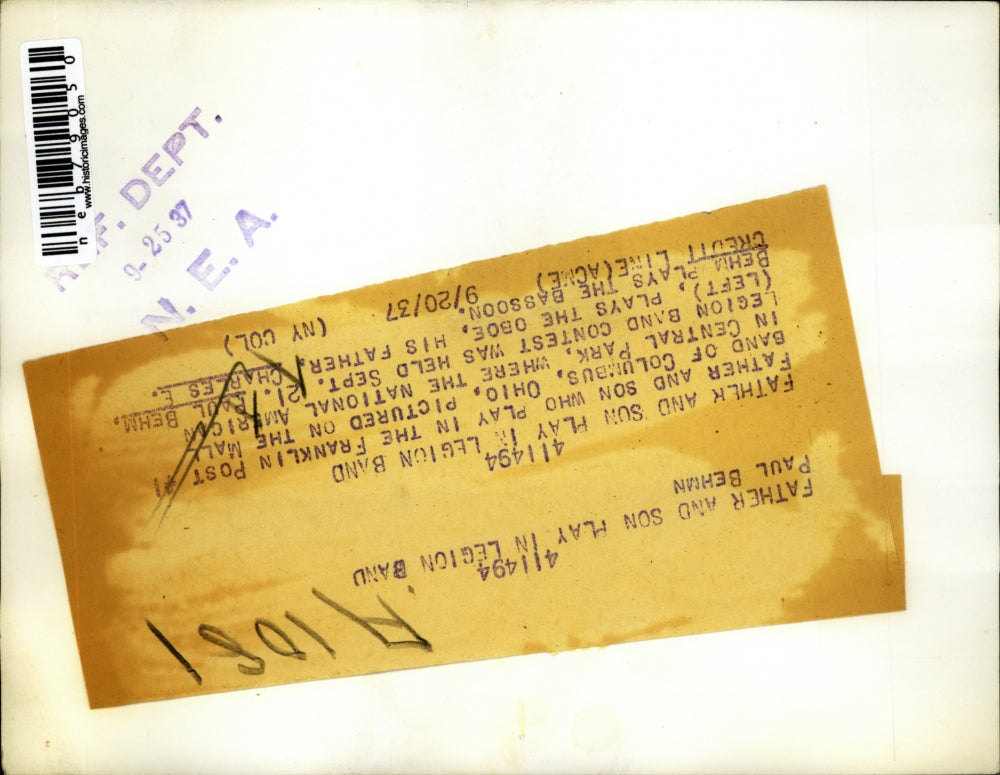 neb79050
www.historicimages.com
REF. DEPT.
9-25 37
N. E. A.
411494
FATHER AND SON PLAY IN LEGION BAND
PAUL BEHMN
411494
FATHER AND SON PLAY IN LEGION BAND
FATHER AND SON WHO PLAY IN THE FRANKLIN POST #1
BAND OF COLUMBUS, OHIO, PICTURED ON THE MALL
IN CENTRAL PARK, WHERE THE NATIONAL AMERICAN
LEGION BAND CONTEST WAS HELD SEPT. 21. PAUL BEHM,
(LEFT), PLAYS THE OBOE, HIS FATHER, CHARLES E.
BEHM PLAYS THE BASSOON.
CREDIT LINE(ACME) 9/20/37 (NY COL)